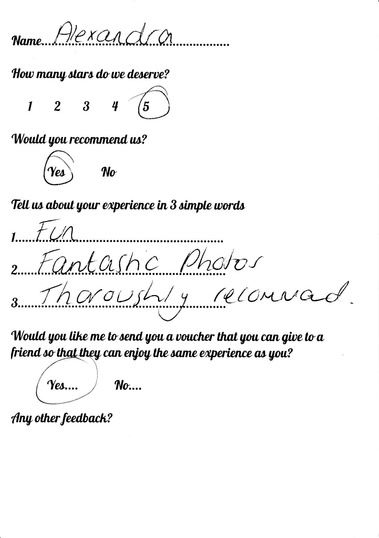 Name....Alexandra....
How many stars do we deserve?
1 2 3 4 5
Would you recommend us?
Yes No
Tell us about your experience in 3 simple words
1....Fun....
2....Fantastic Photos
3....Thoroughly recommend.
Would you like me to send you a voucher that you can give to a
friend so that they can enjoy the same experience as you?
Yes.... No....
Any other feedback?